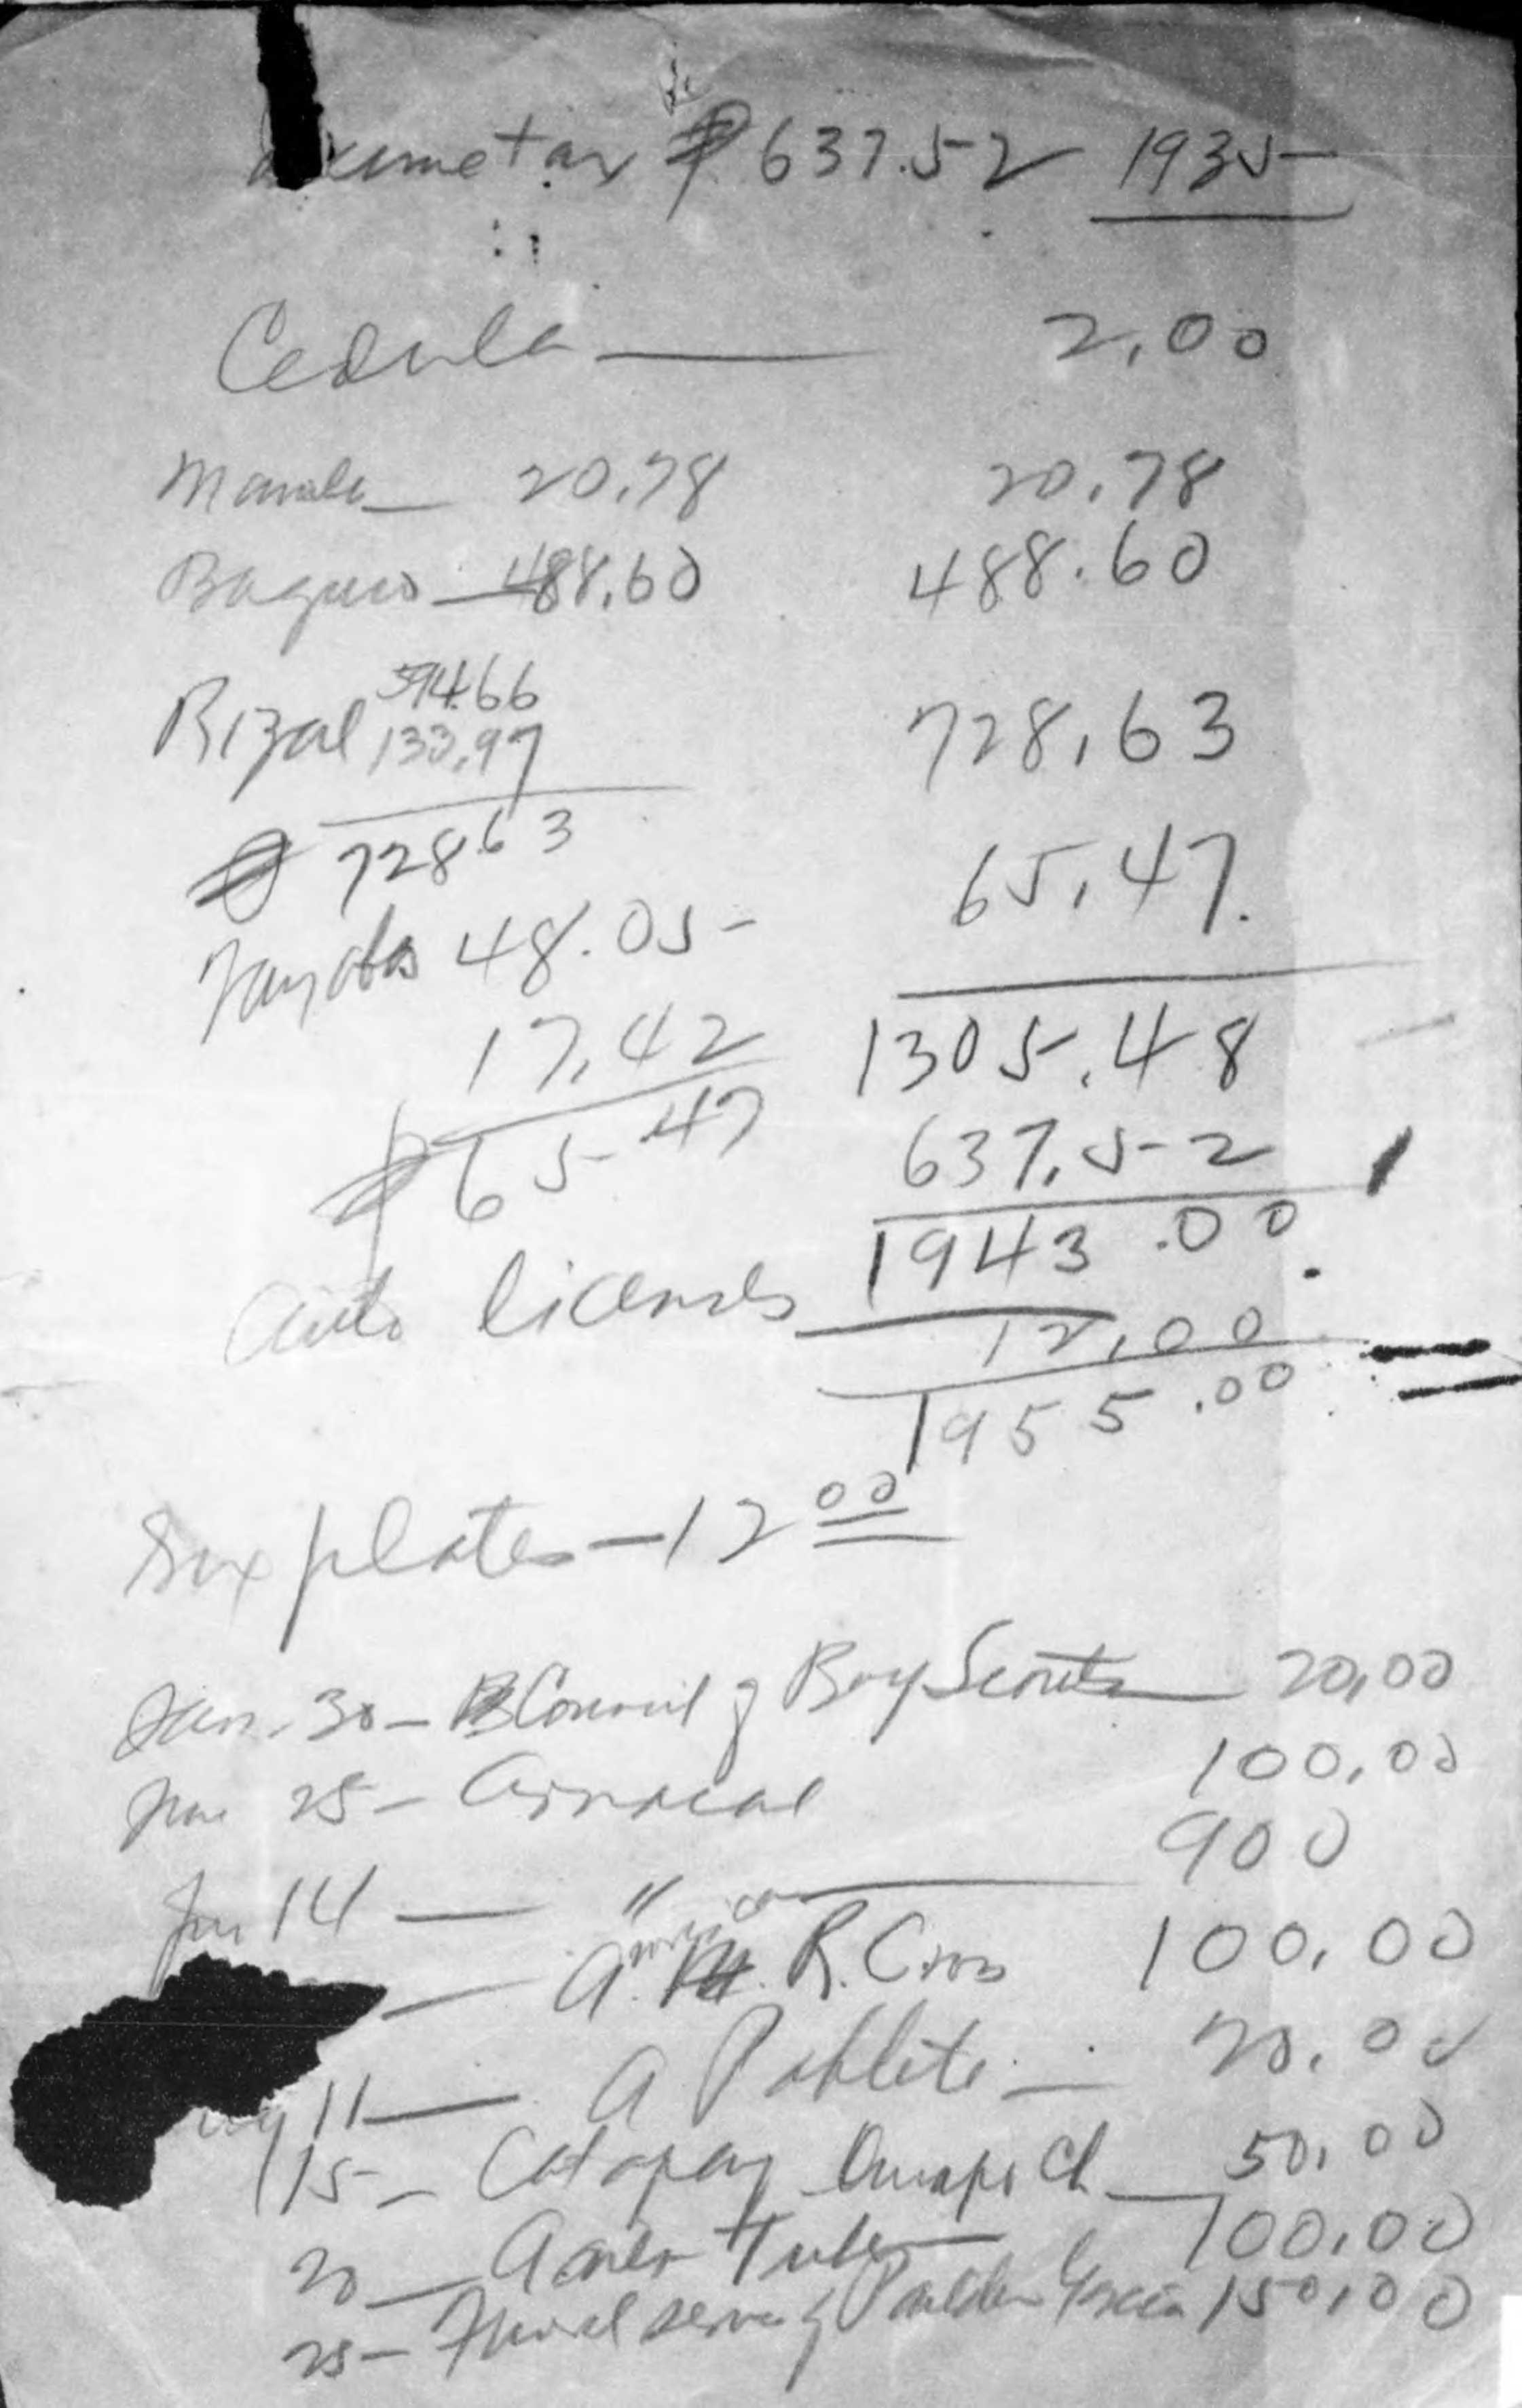 tax ₱ 637.52 1935
Cedula — 2.00
Manila — 20.78 20.78
Baguio — 488.60 488.60
Rizal 594.66 728.63
133.97
728.63
Tayabas 48.05 65.47
17.42 1305.48
₱ 65.47 637.52
1943.00
Auto licenses 12.00
1955.00
Six plates — 12 00
Jan. 30 — Council of Boy Scouts — 20.00
25 — Carnival 100.00
Jan 14 — " — 900
— American R. Cross 100.00
11 — A Poblete — 20.00
15 — Ch — 50.00
20 — Tube — 100.00
25 — of 150.00